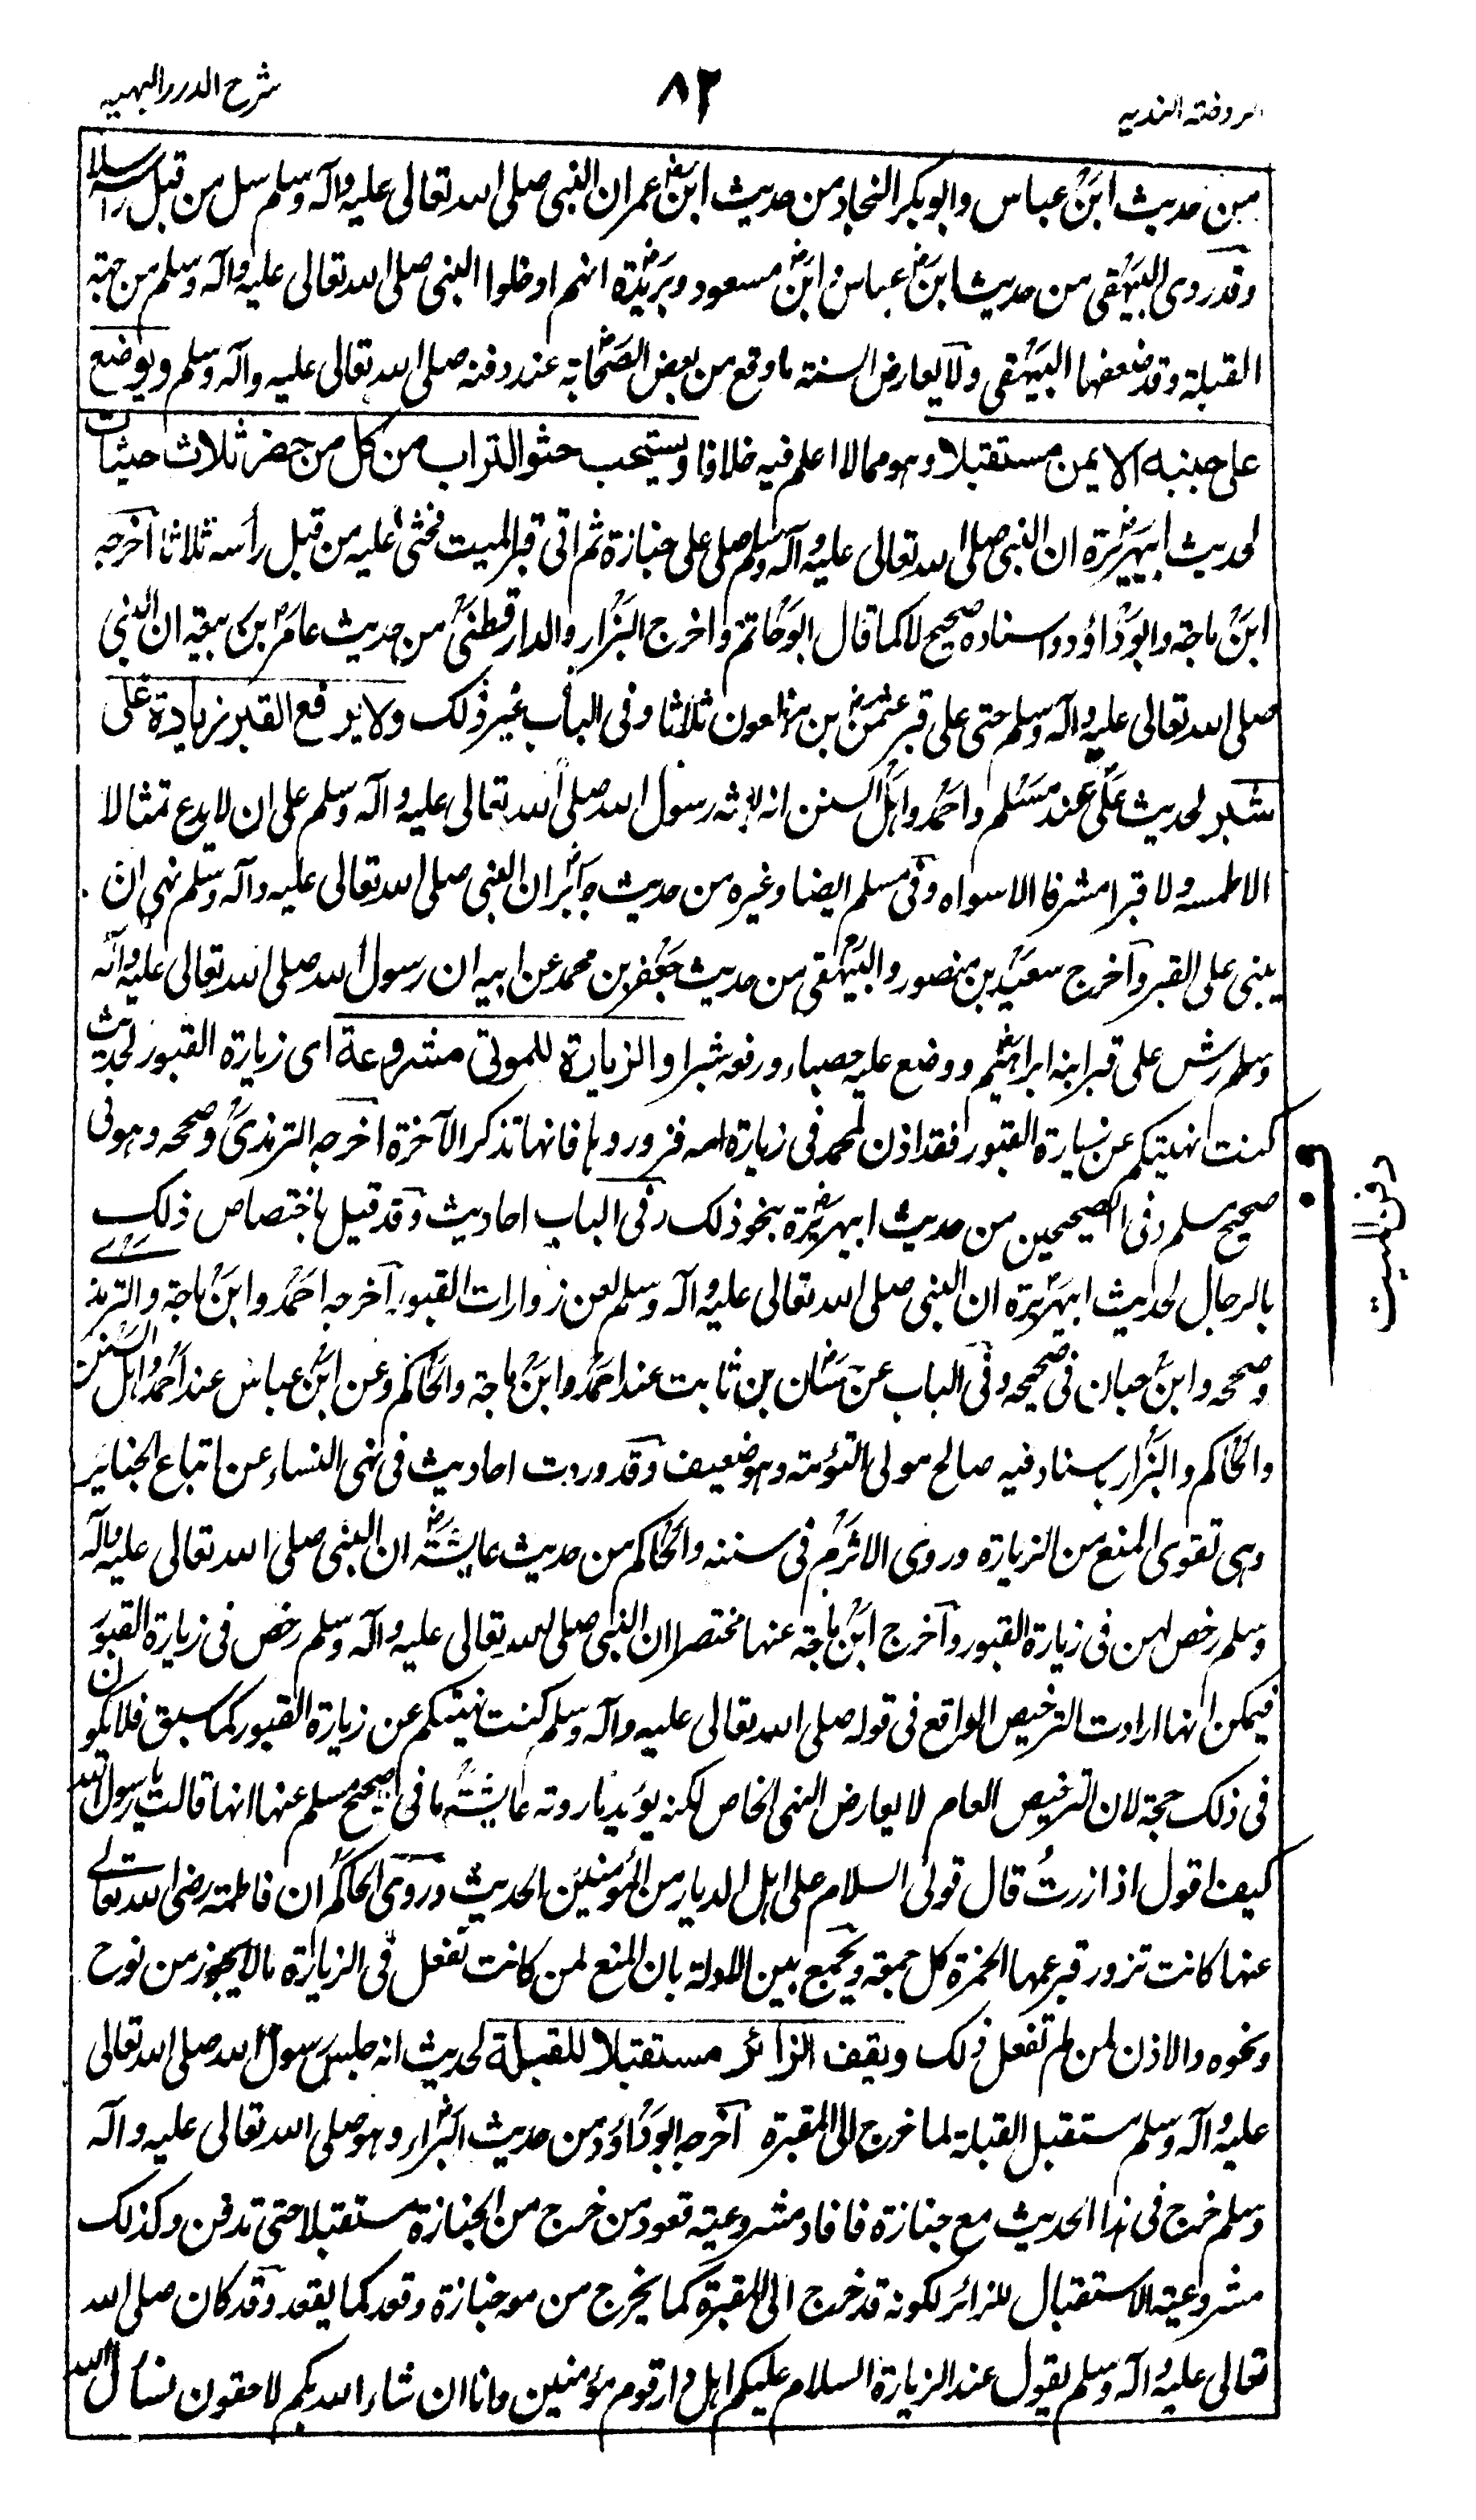 الروضة الندية
٨٢
شرح الدرر البهية
من حديث ابن عباس وابو بكر النجاد من حديث ابن عمر ان النبي صلى الله تعالى عليه وآله وسلم سل من قبل رأسه سلا
وقد روى البيهقي من حديث ابن عباس وابن مسعود وبريدة انهم ادخلوا النبي صلى الله تعالى عليه وآله وسلم من جهة
القبلة وقد ضعفها البيهقي ولا يعارض السنة ما وقع من بعض الصحابة عند دفنه صلى الله تعالى عليه وآله وسلم ويوضع
على جنبه الايمن مستقبلا وهو مما لا اعلم فيه خلافا ويستحب حثو التراب من كل من حضر ثلاث حثيات
لحديث ابي هريرة ان النبي صلى الله تعالى عليه وآله وسلم صلى على جنازة ثم اتى قبر الميت فحثى عليه من قبل رأسه ثلاثا اخرجه
ابن ماجة وابو داؤد واسناده صحيح لا كما قال ابو حاتم واخرج البزار والدارقطني من حديث عامر بن ربيعة ان النبي
صلى الله تعالى عليه وآله وسلم حتى على قبر عثمن بن مظعون ثلاثا وفي الباب غير ذلك ولا يرفع القبر زيادة على
شبر لحديث علي عند مسلم واحمد واهل السنن انه بعثه رسول الله صلى الله تعالى عليه وآله وسلم على ان لا يدع تمثالا
الا طمسه ولا قبرا مشرفا الا سواه وفي مسلم ايضا وغيره من حديث جابر ان النبي صلى الله تعالى عليه وآله وسلم نهى ان
يبنى على القبر واخرج سعيد بن منصور والبيهقي من حديث جعفر بن محمد عن ابيه ان رسول الله صلى الله تعالى عليه وآله
وسلم رش على قبر ابنه ابراهيم ووضع عليه حصباء ورفعه شبرا والزيارة للموتى مشروعة اى زيارة القبور لحديث
كنت نهيتكم عن زيارة القبور فقد اذن لمحمد في زيارة امه فزوروها فانها تذكر الآخرة اخرجه الترمذي وصححه وهو في
صحيح مسلم وفي الصحيحين من حديث ابي هريرة بنحو ذلك وفي الباب احاديث وقد قيل باختصاص ذلك
بالرجال لحديث ابي هريرة ان النبي صلى الله تعالى عليه وآله وسلم لعن زوارات القبور اخرجه احمد وابن ماجة والترمذي
وصححه وابن حبان في صحيحه وفي الباب عن حسان بن ثابت عند احمد وابن ماجة والحاكم وعن ابن عباس عند احمد واهل السنن
والحاكم والبزار باسناد فيه صالح مولى التوئمة وهو ضعيف وقد وردت احاديث في نهى النساء عن اتباع الجنائز
وهي تقوى المنع من الزيارة وروى الاثرم في سننه والحاكم من حديث عايشة ان النبي صلى الله تعالى عليه وآله
وسلم رخص لهن في زيارة القبور واخرج ابن ماجة عنها مختصرا ان النبي صلى الله تعالى عليه وآله وسلم رخص في زيارة القبور
فيمكن انها ارادت الترخيص الواقع في قوله صلى الله تعالى عليه وآله وسلم كنت نهيتكم عن زيارة القبور كما سبق فلا يكون
في ذلك حجة لان الترخيص العام لا يعارض النهى الخاص لكنه يؤيد ما روته عايشة ما في صحيح مسلم عنها انها قالت يا رسول الله
كيف اقول اذا زرت قال قولى السلام على اهل الديار من المؤمنين الحديث وروى الحاكم ان فاطمة رضى الله تعالى
عنها كانت تزور قبر عمها الحمزة كل جمعة ويجمع بين الادلة بان المنع لمن كانت تفعل في الزيارة ما لا يجوز من نوح
ونحوه والاذن لمن لم تفعل ذلك ويقف الزائر مستقبلا للقبلة لحديث انه جلس رسول الله صلى الله تعالى
عليه وآله وسلم مستقبل القبلة لما خرج الى المقبرة اخرجه ابو داؤد من حديث البزار وهو صلى الله تعالى عليه وآله
وسلم خرج في هذا الحديث مع جنازة فافاد مشروعية قعود من خرج من الجنازة مستقبلا حتى تدفن وكذلك
مشروعية الاستقبال للزائر لكونه قد خرج الى المقبرة كما يخرج من معه جنازة وقعد كما يقعد وقد كان صلى الله
تعالى عليه وآله وسلم يقول عند الزيارة السلام عليكم اهل دار قوم مؤمنين وانا ان شاء الله بكم لاحقون نسأل الله
دفن الميت